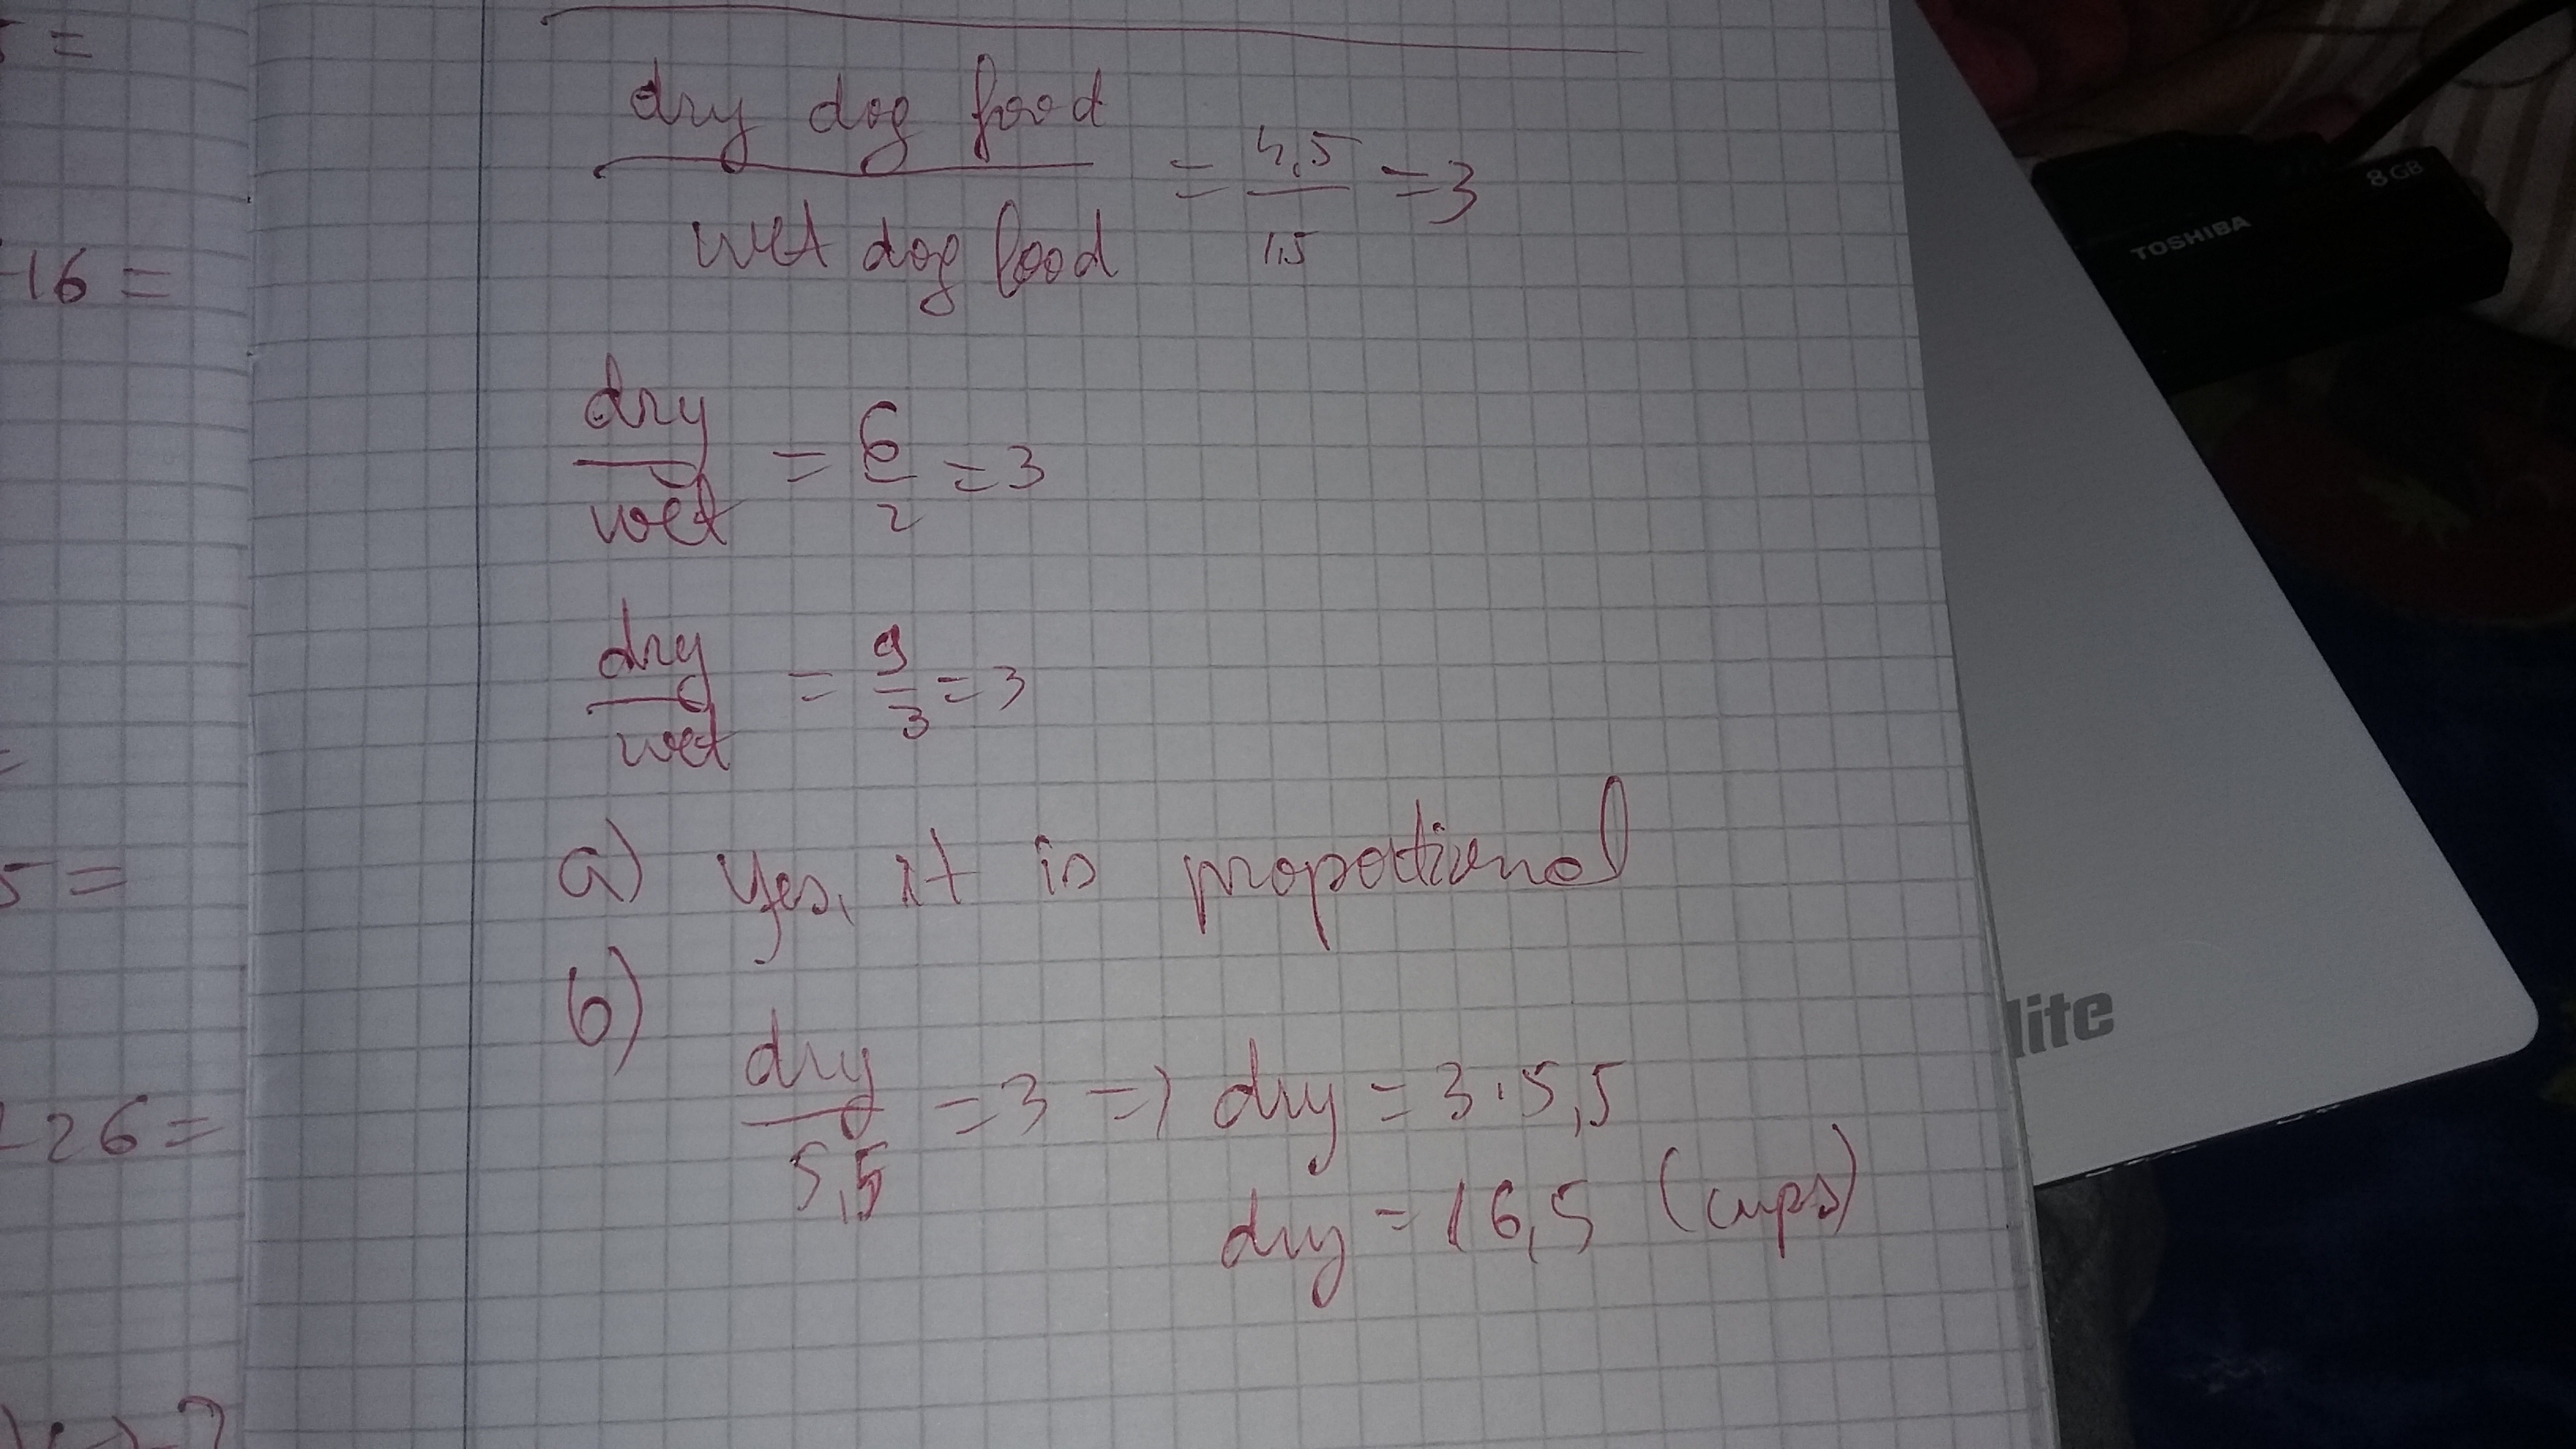 5 =
-16 =
=
5 =
-26 =
dry dog food
wet dog food
= 4,5 / 1,5 = 3
dry / wet = 6 / 2 = 3
dry / wet = 9 / 3 = 3
a) Yes, it is propotional
b)
dry / 5,5 = 3 => dry = 3 · 5,5
dry = 16,5 (cups)
8 GB
TOSHIBA
lite